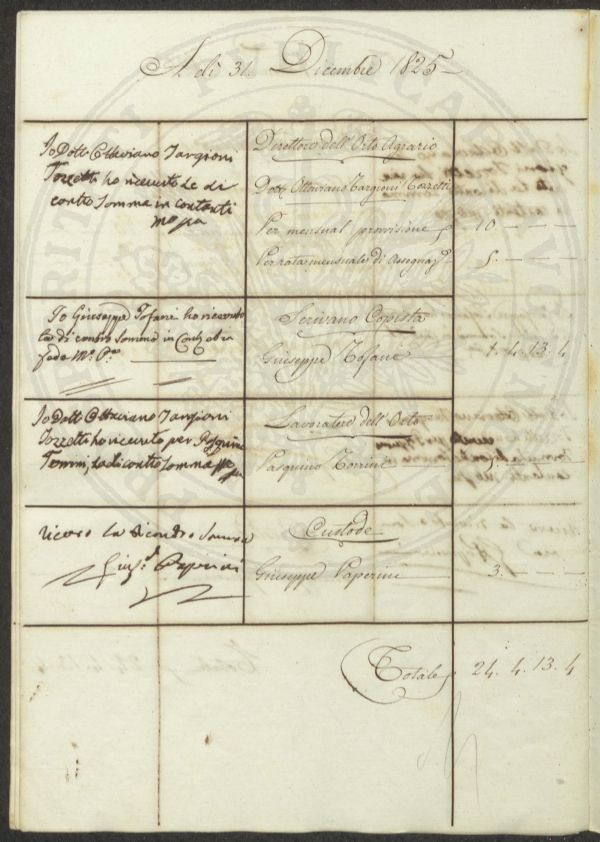 A dì 31. Dicembre 1825
Io Dott Ottaviano Targioni
Tozzetti ho ricevuto la di
contro Somma in contanti
mo pa
Direttore dell'Orto Agrario
Dott Ottaviano Targioni Tozzetti
Per mensual provisione 10 — — —
Per rata mensuale di Assegnaz. 5. — — —
Io Giuseppe Tofani ho ricevuto
la di contro Somma in Conti ed in
fede Mo. Pa.
Scrivano Copista
Giuseppe Tofani 1. 4. 13. 4
Io Dott Ottaviano Targioni
Tozzetti ho ricevuto per Pasquino
Torrini, la di contro Somma
Lavoratore dell'Orto
Pasquino Torrini 5. — — —
ricevo la Somma
Giu. Paperini
Custode
Giuseppe Paperini 3. — — —
Totale 24. 4. 13. 4